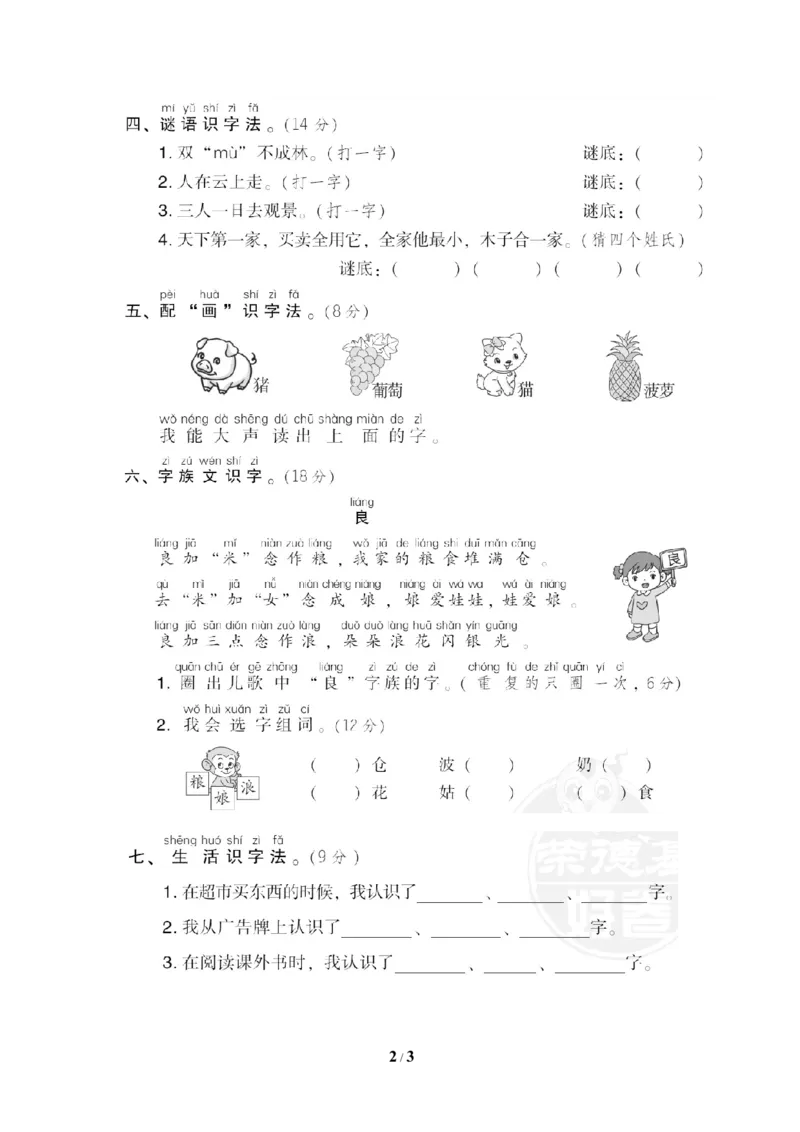 mí yǔ shí zì fǎ
四、谜语识字法。(14分)
1. 双“mù”不成林。(打一字) 谜底：(  )
2. 人在云上走。(打一字) 谜底：(  )
3. 三人一日去观景。(打一字) 谜底：(  )
4. 天下第一家，买卖全用它，全家他最小，木子合一家。(猜四个姓氏)
谜底：(  ) (  ) (  ) (  )
pèi huà shí zì fǎ
五、配“画”识字法。(8分)
猪 葡萄 猫 菠萝
wǒ néng dà shēng dú chū shàng miàn de zì
我能大声读出上面的字。
zì zú wén shí zì
六、字族文识字。(18分)
liáng
良
liáng jiā mǐ niàn zuò liáng wǒ jiā de liáng shi duī mǎn cāng
良加“米”念作粮，我家的粮食堆满仓。
qù mǐ jiā nǚ niàn chéng niáng niáng ài wá wa wá ài niáng
去“米”加“女”念成娘，娘爱娃娃，娃爱娘。
良
liáng jiā sān diǎn niàn zuò làng duǒ duǒ làng huā shǎn yín guāng
良加三点念作浪，朵朵浪花闪银光。
quān chū ér gē zhōng liáng zì zú de zì chóng fù de zhǐ quān yí cì
1. 圈出儿歌中“良”字族的字。(重复的只圈一次，6分)
wǒ huì xuǎn zì zǔ cí
2. 我会选字组词。(12分)
粮 娘 浪
(  )仓 波(  ) 奶(  )
(  )花 姑(  ) (  )食
shēng huó shí zì fǎ
七、生活识字法。(9分)
荣德基
好卷
1. 在超市买东西的时候，我认识了______、______、______字。
2. 我从广告牌上认识了______、______、______字。
3. 在阅读课外书时，我认识了______、______、______字。
2 / 3